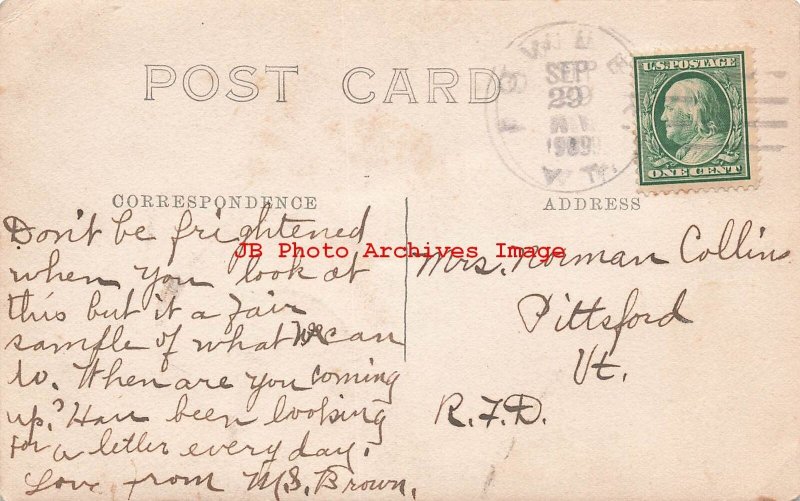 POST CARD
SEP
29
1909
U.S. POSTAGE
ONE CENT
CORRESPONDENCE
ADDRESS
Don't be frightened
when you look at
this but it a fair
sample of what we can
do. When are you coming
up? Have been looking
for a letter every day.
Love from M.S. Brown.
JB Photo Archives Image
Mrs. Norman Collins
Pittsford
Vt.
R.F.D.